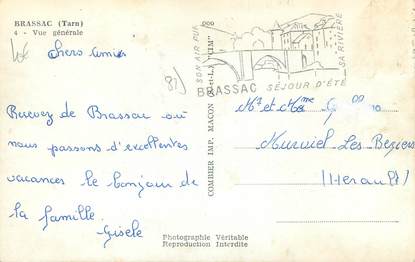 BRASSAC (Tarn)
4 - Vue générale
Chers amis
Recevez de Brassac où
nous passons d'excellentes
vacances le bonjour de
la famille.
Gisèle
Photographie Véritable
Reproduction Interdite
COMBIER IMP. MACON
SON AIR PUR
SA RIVIÈRE
BRASSAC SÉJOUR D'ÉTÉ
Mr et Mme
Murviel Les Beziers
(Herault)